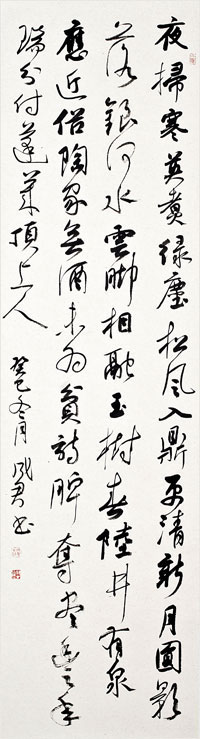 夜掃寒英煮緑塵松風入鼎更清新月圓影
落銀河水雲脚相融玉樹春陸井有泉
應近俗陶家無酒未為貧詩脾奪盡豐年
瑞分付蓬萊頂上人
癸巳冬月 君書